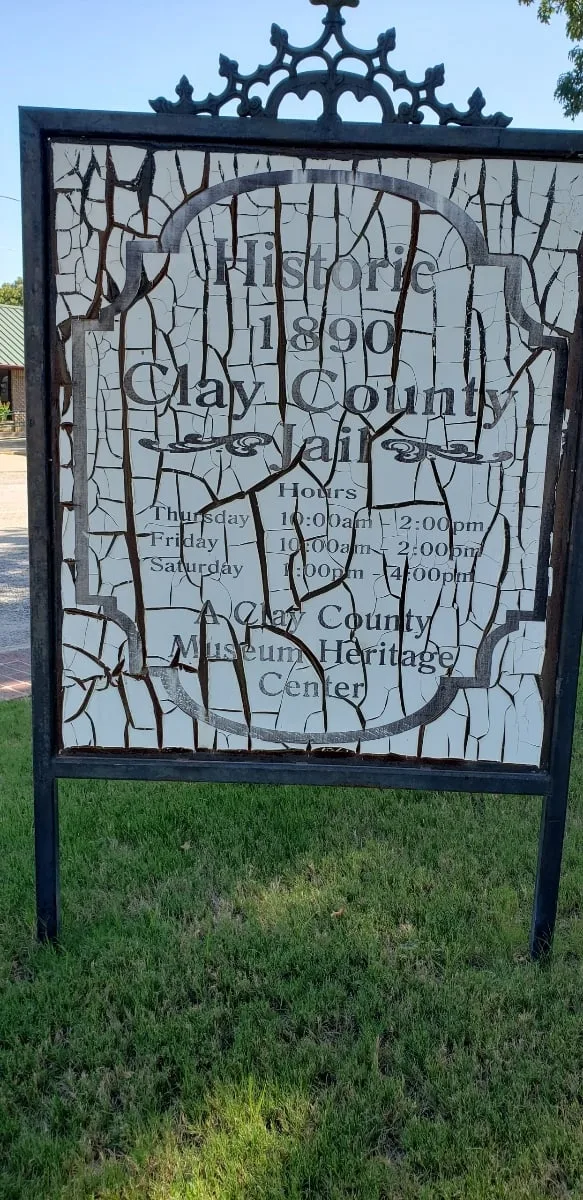 Historic
1890
Clay County
Jail
Hours
Thursday 10:00am - 2:00pm
Friday 10:00am - 2:00pm
Saturday 1:00pm - 4:00pm
A Clay County
Museum Heritage
Center